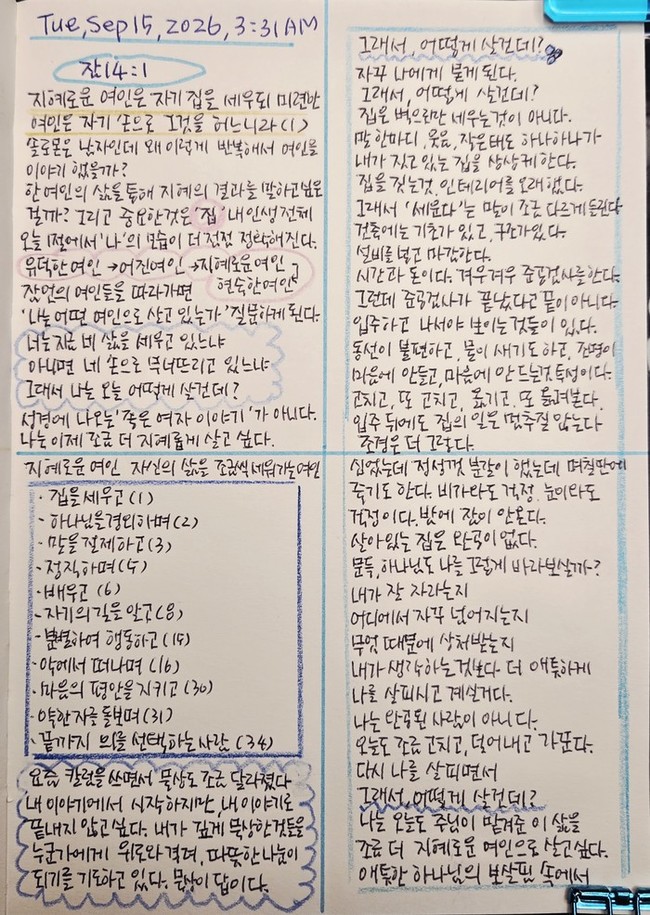 Tue, Sep 15, 2026, 3:31 AM
잠 14:1
지혜로운 여인은 자기 집을 세우되 미련한
여인은 자기 손으로 그것을 허느니라 (1)
솔로몬은 남자인데 왜 이렇게 반복해서 여인을
이야기 했을까?
한 여인의 삶을 통해 지혜의 결과를 말하고 싶은
걸까? 그리고 중요한것은 '집' 내 인생 전체
오늘 1절에서 '나'의 모습이 더 점점 정확해진다.
유덕한 여인 → 어진여인 → 지혜로운 여인
현숙한 여인
잠언의 여인들을 따라가면
'나는 어떤 여인으로 살고 있는가' 질문하게 된다.
너는 지금 네 삶을 세우고 있느냐
아니면 네 손으로 무너뜨리고 있느냐
그래서 나는 오늘 어떻게 살건데?
성경에 나오는 '죽은 여자 이야기'가 아니다.
나는 이제 조금 더 지혜롭게 살고 싶다.
지혜로운 여인 자신의 삶을 조금씩 세워가는 여인
· 집을 세우고 (1)
· 하나님을 경외하며 (2)
· 말을 절제하고 (3)
· 정직하며 (5)
· 배우고 (6)
· 자기의 길을 알고 (8)
· 분별하여 행동하고 (15)
· 악에서 떠나며 (16)
· 마음의 평안을 지키고 (30)
· 약한 자를 돌보며 (31)
· 끝까지 의를 선택하는 사람 (34)
요즘 칼럼을 쓰면서 묵상도 조금 달라졌다
내 이야기에서 시작하지만, 내 이야기로
끝내지 않고 싶다. 내가 깊게 묵상한 것들을
누군가에게 위로와 격려, 따뜻한 나눔이
되기를 기도하고 있다. 묵상이 답이다.
그래서, 어떻게 살건데?
자꾸 나에게 묻게 된다.
그래서, 어떻게 살건데?
집은 벽으로만 세우는 것이 아니다.
말 한마디, 웃음, 작은 태도 하나하나가
내가 짓고 있는 집을 상상케 한다.
집을 짓는것, 인테리어를 오래 했다.
그래서 '세운다'는 말이 조금 다르게 들린다
건축에는 기초가 있고, 구조가 있다.
설비를 넣고 마감한다.
시간과 돈이다. 겨우겨우 준공검사를 한다.
그런데 준공검사가 끝났다고 끝이 아니다.
입주하고 나서야 보이는 것들이 있다.
동선이 불편하고, 물이 새기도 하고, 조명이
마음에 안들고, 마음에 안 드는것 투성이다.
고치고, 또 고치고, 옮기고, 또 옮겨본다.
입주 뒤에도 집의 일은 멈추질 않는다
조경은 더 그렇다.
심었는데 정성껏 분갈이 했는데 며칠만에
죽기도 한다. 비가 와도 걱정, 눈이 와도
걱정이다. 밤에 잠이 안온다.
살아있는 집은 완공이 없다.
문득, 하나님도 나를 그렇게 바라보실까?
내가 잘 자라는지
어디에서 자꾸 넘어지는지
무엇 때문에 상처받는지
내가 생각하는 것보다 더 애틋하게
나를 살피시고 계실거다.
나는 완공된 사람이 아니다.
오늘도 조금 고치고, 덜어내고 가꾼다.
다시 나를 살피면서
그래서, 어떻게 살건데?
나는 오늘도 주님이 맡겨준 이 삶을
조금 더 지혜로운 여인으로 살고 싶다.
애틋한 하나님의 보살핌 속에서